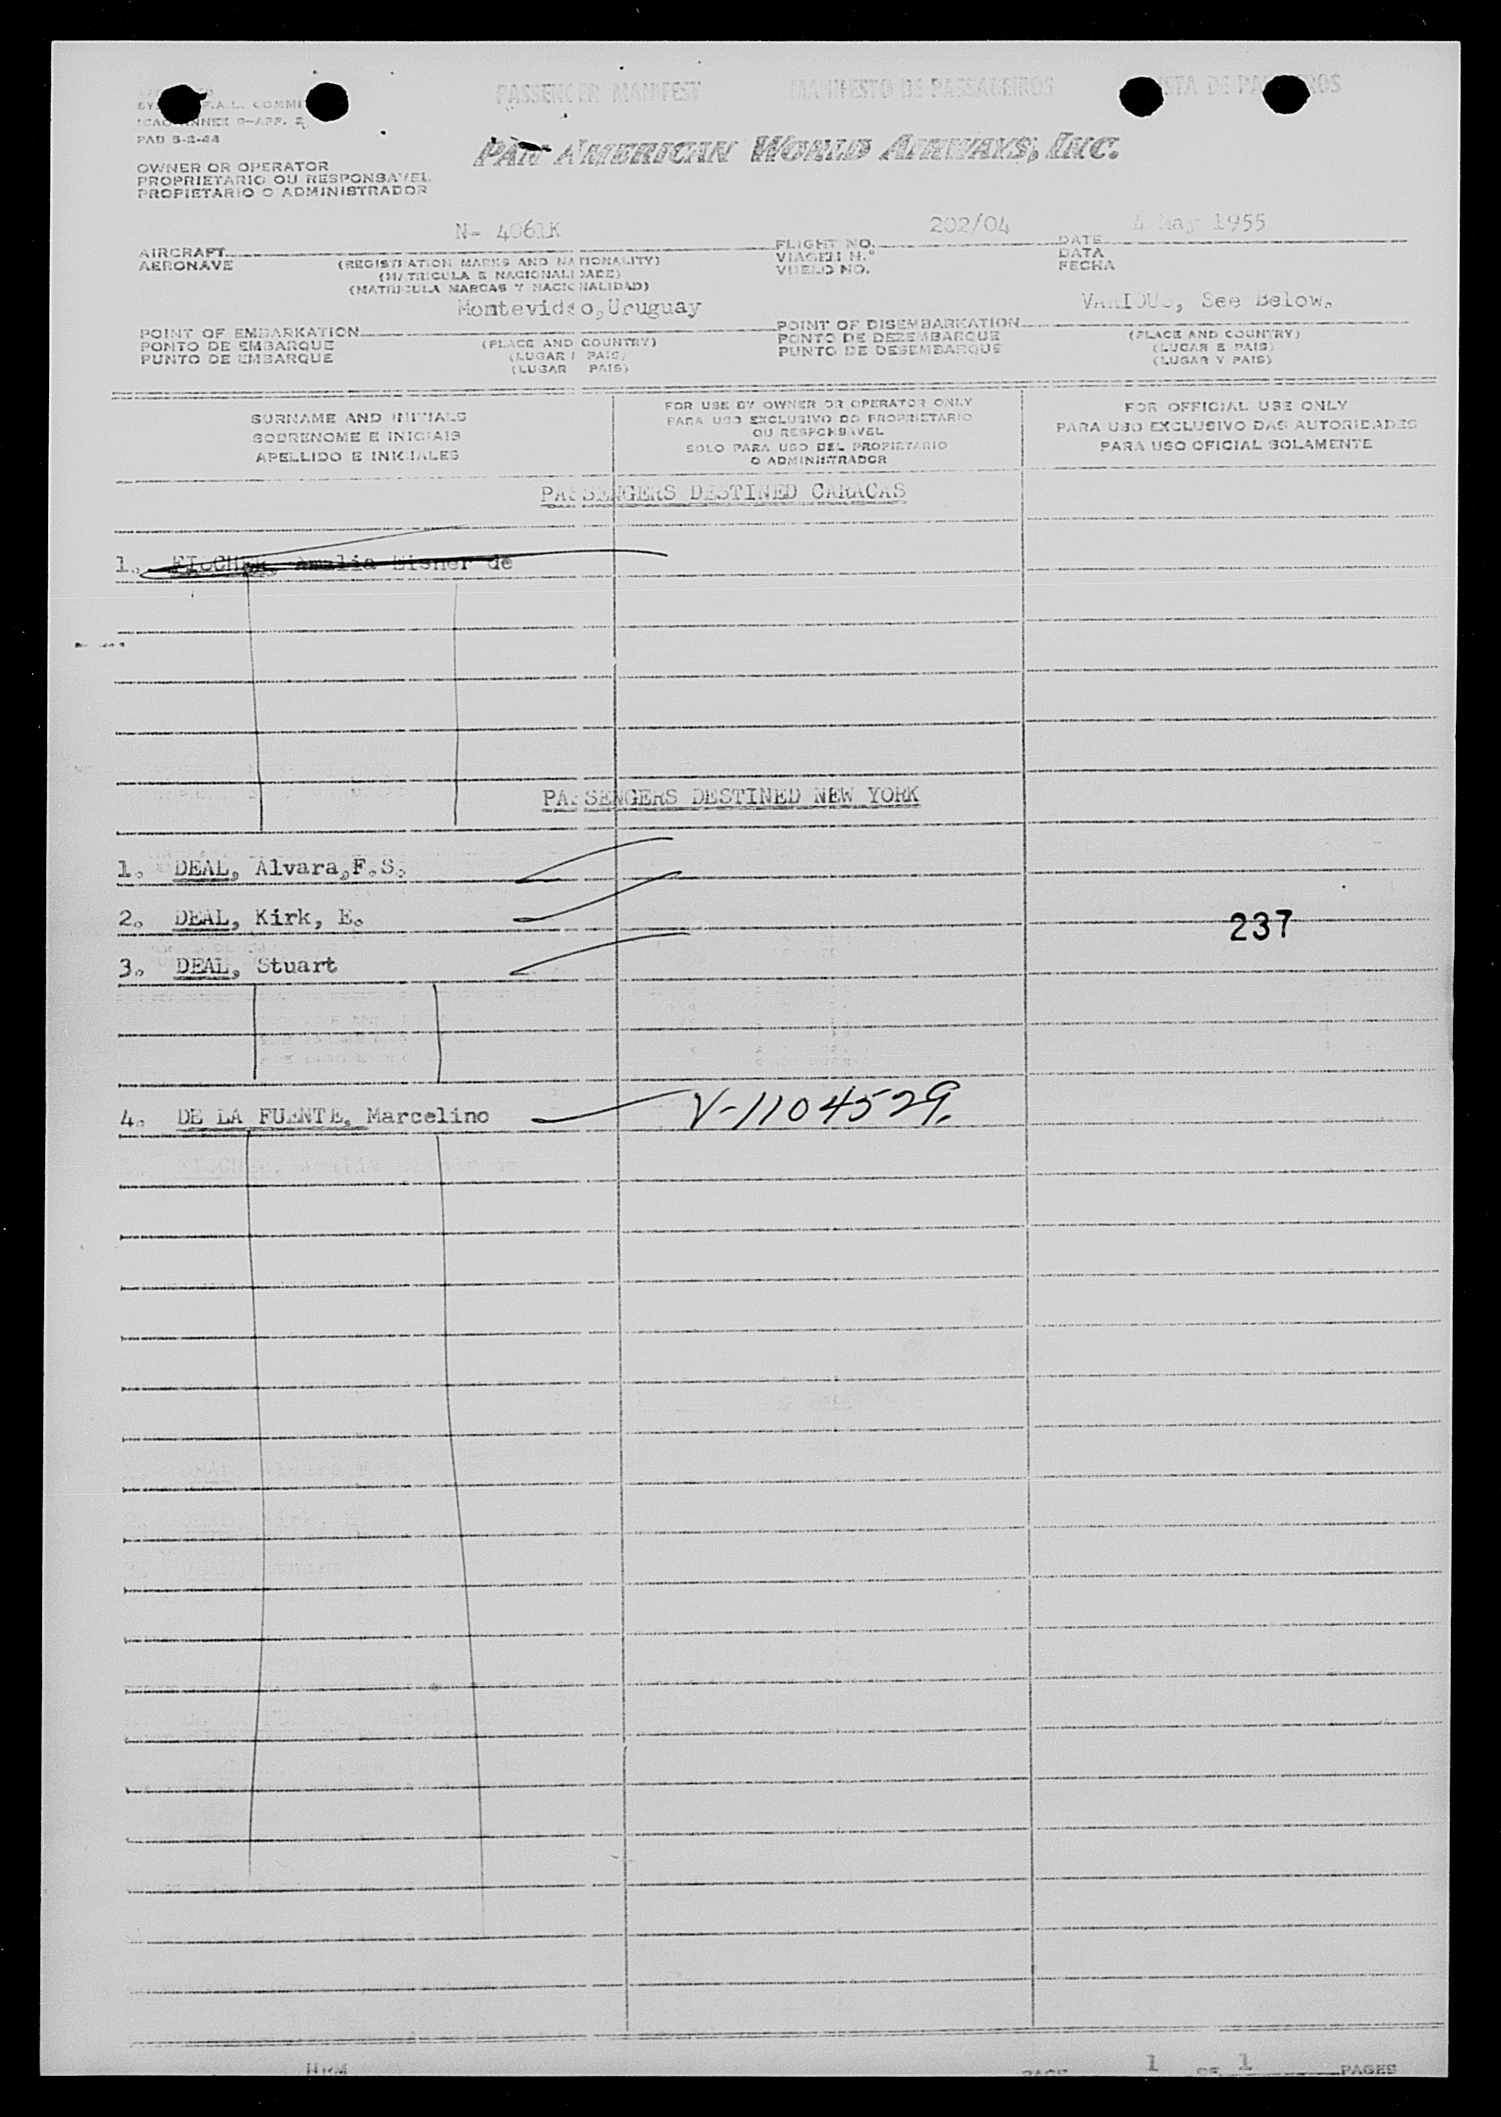 PASSENGER MANIFEST MANIFESTO DE PASSAGEIROS
F.A.L.
PAD 5-2-44
PAN AMERICAN WORLD AIRWAYS, INC.
OWNER OR OPERATOR
PROPRIETARIO OU RESPONSAVEL
PROPIETARIO O ADMINISTRADOR
N- 4061K 202/04 4 May 1955
AIRCRAFT FLIGHT NO. DATE
AERONAVE (REGISTRATION MARKS AND NATIONALITY) VIAGEM N.º DATA
(MATRICULA E NACIONALIDADE) VUELO NO. FECHA
(MATRICULA MARCAS Y NACIONALIDAD)
Montevideo, Uruguay VARIOUS, See Below.
POINT OF EMBARKATION POINT OF DISEMBARKATION
PONTO DE EMBARQUE (PLACE AND COUNTRY) PONTO DE DEZEMBARQUE (PLACE AND COUNTRY)
PUNTO DE EMBARQUE (LUGAR E PAIS) PUNTO DE DESEMBARQUE (LUGAR E PAIS)
(LUGAR PAIS) (LUGAR Y PAIS)
SURNAME AND INITIALS
SOBRENOME E INICIAIS
APELLIDO E INICIALES
FOR USE BY OWNER OR OPERATOR ONLY
PARA USO EXCLUSIVO DO PROPRIETARIO
OU RESPONSAVEL
SOLO PARA USO DEL PROPIETARIO
O ADMINISTRADOR
FOR OFFICIAL USE ONLY
PARA USO EXCLUSIVO DAS AUTORIDADES
PARA USO OFICIAL SOLAMENTE
PASSENGERS DESTINED CARACAS
1. Amalia Eisner de
PASSENGERS DESTINED NEW YORK
1. DEAL, Alvara,F.S.
2. DEAL, Kirk, E.
237
3. DEAL, Stuart
4. DE LA FUENTE, Marcelino V-1104529.
PAGE 1 OF 1 PAGES